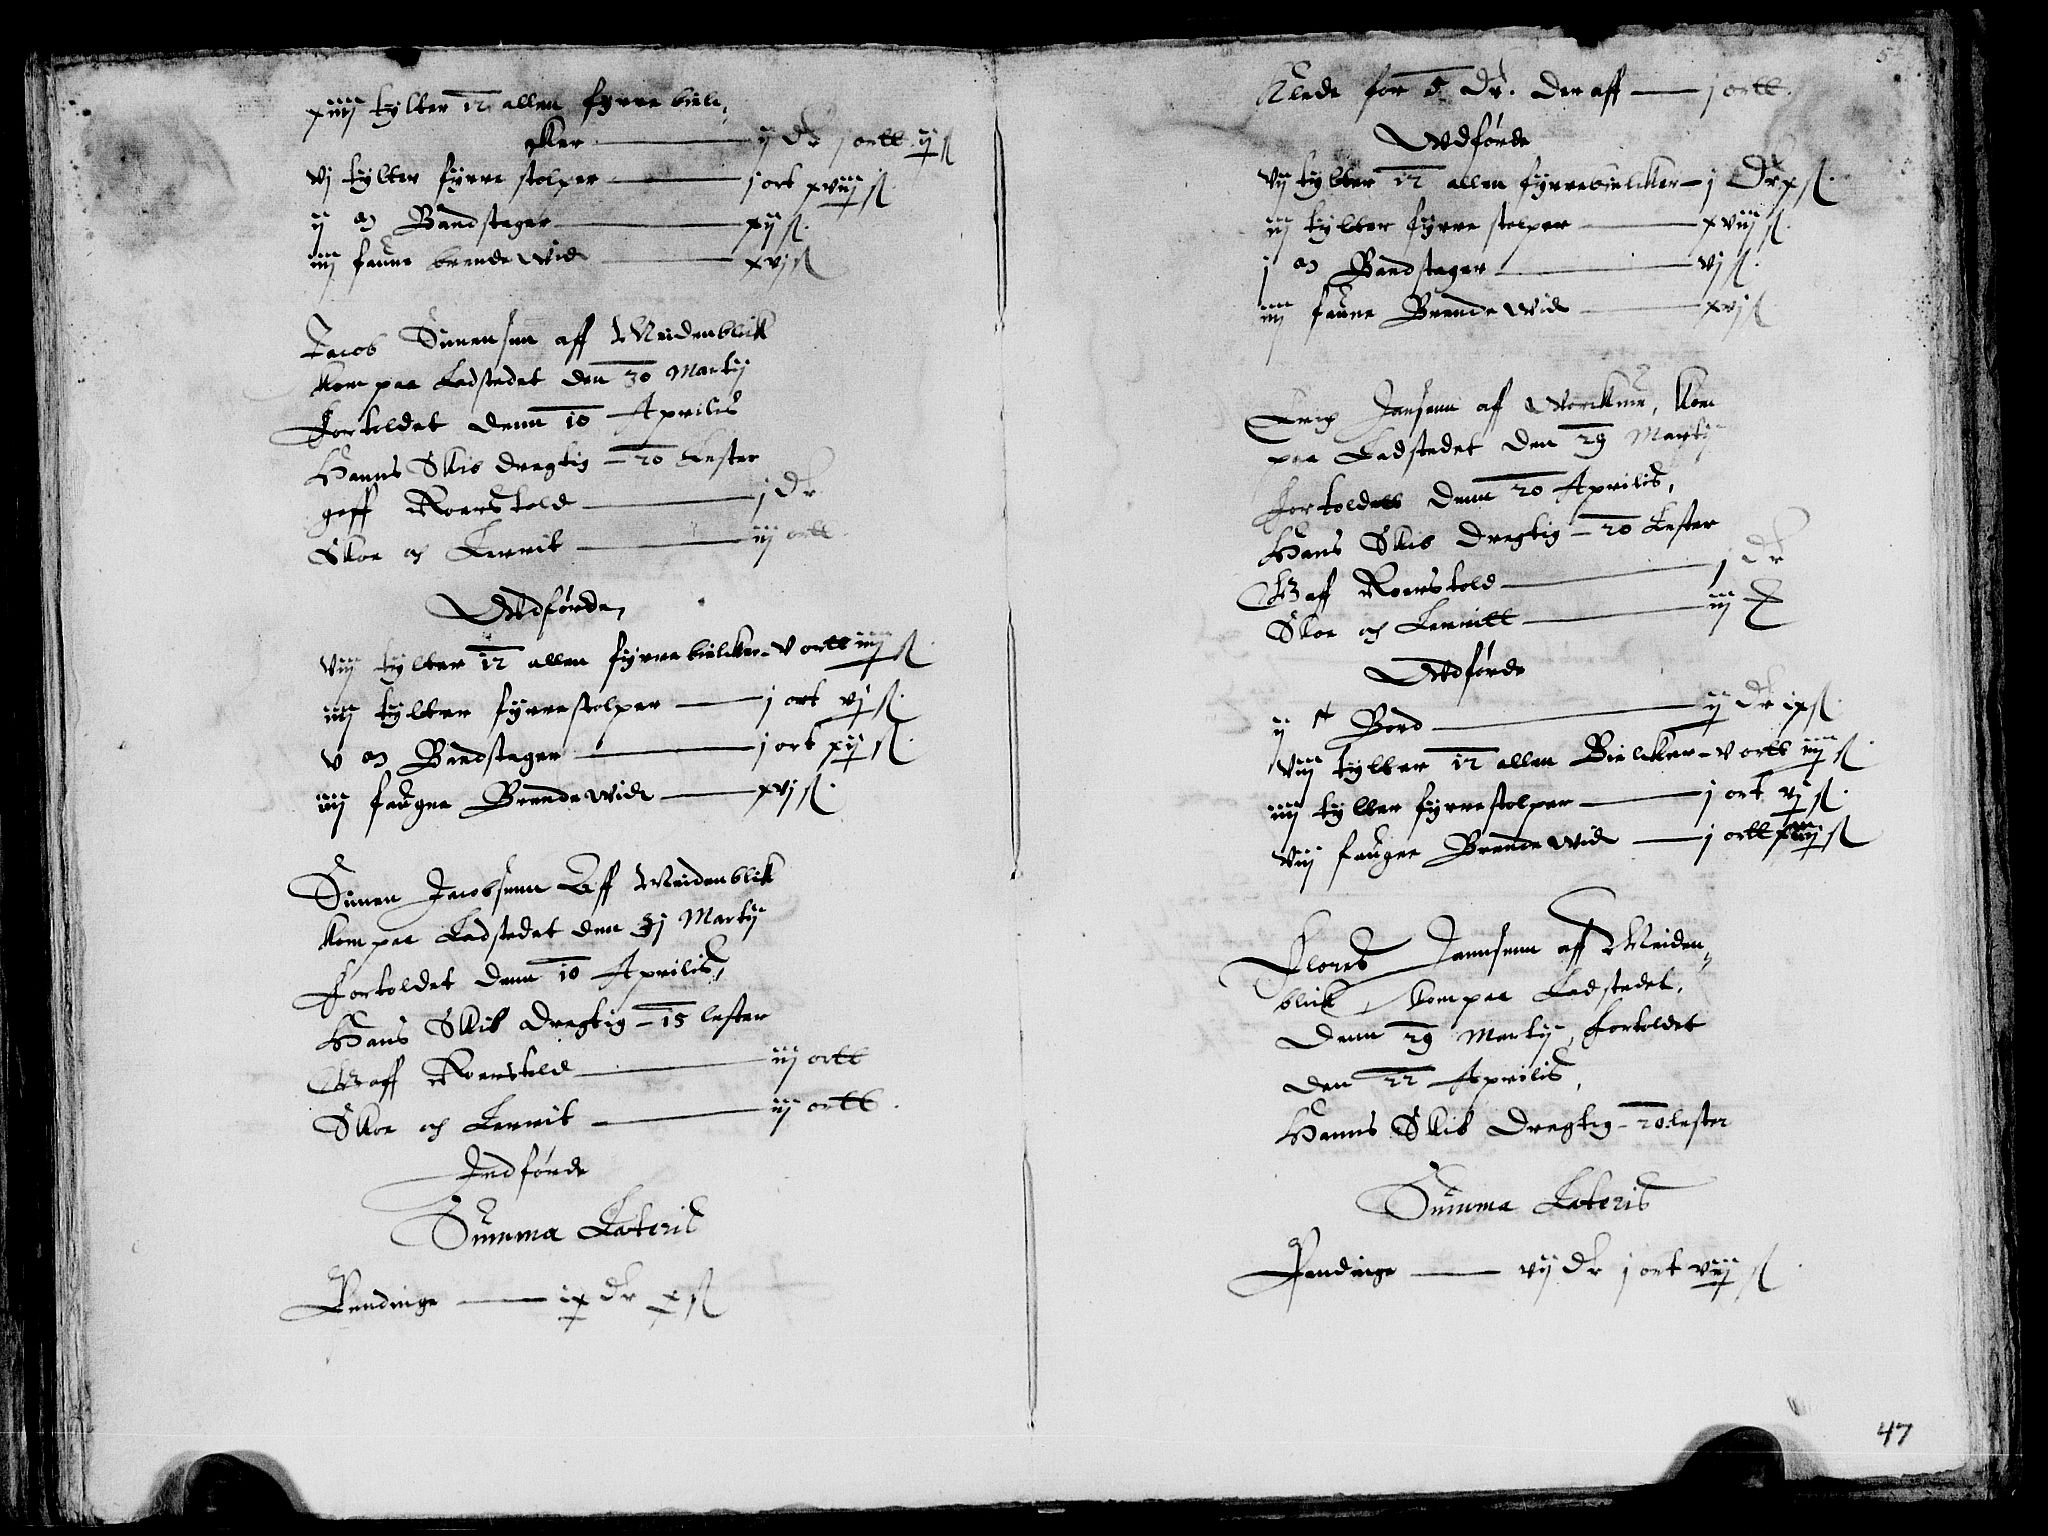 xiiij tylter 12 allen fyrre biel,,
cker — ij dr j ortt ij ß
vj tylter fyrre stolper — j ort xviij ß
ij m Båndstager — xij ß.
iiij faune brende wid — xvj ß
Jacob Simensen aff Meidenblik
kom paa Ladstedet den 30 Martij
Fortoldet denn 10 Aprilis
Hanns Skib dregtig – 20 Lester
gaff Roerstold — j dr
Skoe och Lerrit — iij ortt.
Udførde,
viij tylter 12 allen fyrre bielcker – v ortt iiij ß.
iiij tylter fyrrestolper — j ort vj ß.
v m Båndstager — j ort xij ß.
iiij faugne Brendewid — xvj ß.
Simen Jacobsenn Aff Meidenblik
kom paa Ladstedet den 31 Martij
Fortoldet denn 10 Aprilis,
Hans Skib dregtig – 15 lester
Gaff Roerstold — iij ortt
Skoe och Lerrit — iij ortt.
Indførde
Summa Lateris
Pendinge — ix dr x ß
Klede for 5 Dr. Der aff — j ortt.
Udførde
vij tylter 12 allen fyrrebielcker – j Dr x ß.
iij tylter fyrre stolper — xviij ß.
j m Båndstager — vj ß.
iiij faune Brende wid — xvj ß
Jansenn aff Worckum, kom
paa Ladstedet den 29 Martij
Fortoldett denn 20 Aprilis,
Hans Skib dregtig – 20 Lester
Gaff Roerstold — j dr
Skoe och Lerritt — iij
Udførde
ij Bord — ij dr ix ß.
viij tylter 12 allen Bielcker – v ortt iiij ß.
iiij tylter fyrrestolper — j ort vj ß.
viij faugne Brende wid — j ortt ß
Flores Jannsenn aff Meiden,,
blick, kom paa Ladstedet,
Denn 29 Martij, Fortoldet
den 22 Aprilis,
Hanns Skib Dregtig – 20 lester
Summa Lateris
Pendinge — vij dr j ort viij ß.
47